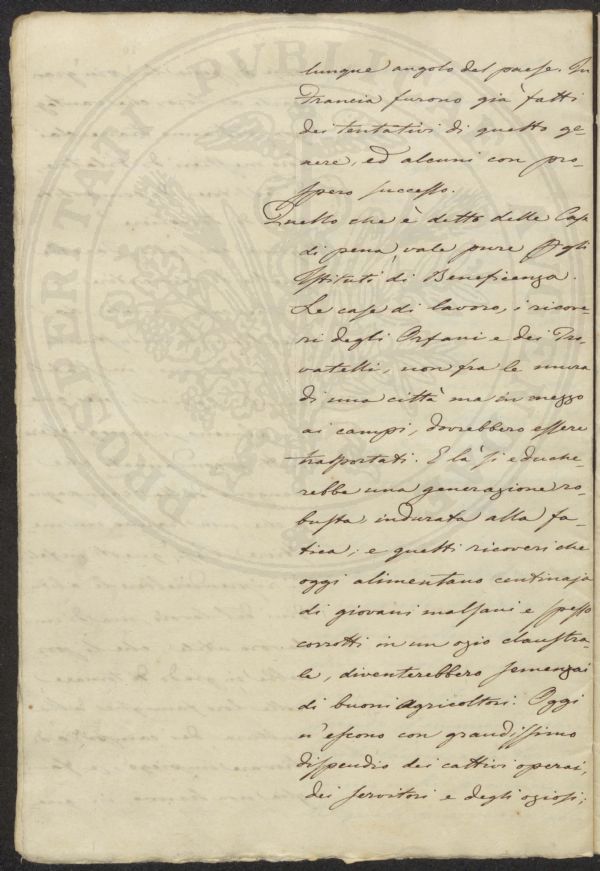 lunque angolo del paese. In
Francia furono già fatti
dei tentativi di questo ge-
nere, ed alcuni con pro-
spero successo.
Quello che è detto delle Case
di pena, vale pure per gli
Istituti di Beneficenza.
Le case di lavoro, i ricove-
ri degli Orfani e dei Tro-
vatelli, non fra le mura
di una città ma in mezzo
ai campi, dovrebbero essere
trasportati. E là si eduche-
rebbe una generazione ro-
busta, indurata alla fa-
tica; e questi ricoveri che
oggi alimentano centinaja
di giovani malsani e spesso
corrotti in un ozio claustra-
le, diventerebbero semenzai
di buoni Agricoltori. Oggi
n'escono con grandissimo
dispendio dei cattivi operai,
dei servitori e degli oziosi;
PROSPERITATI PVBLICAE